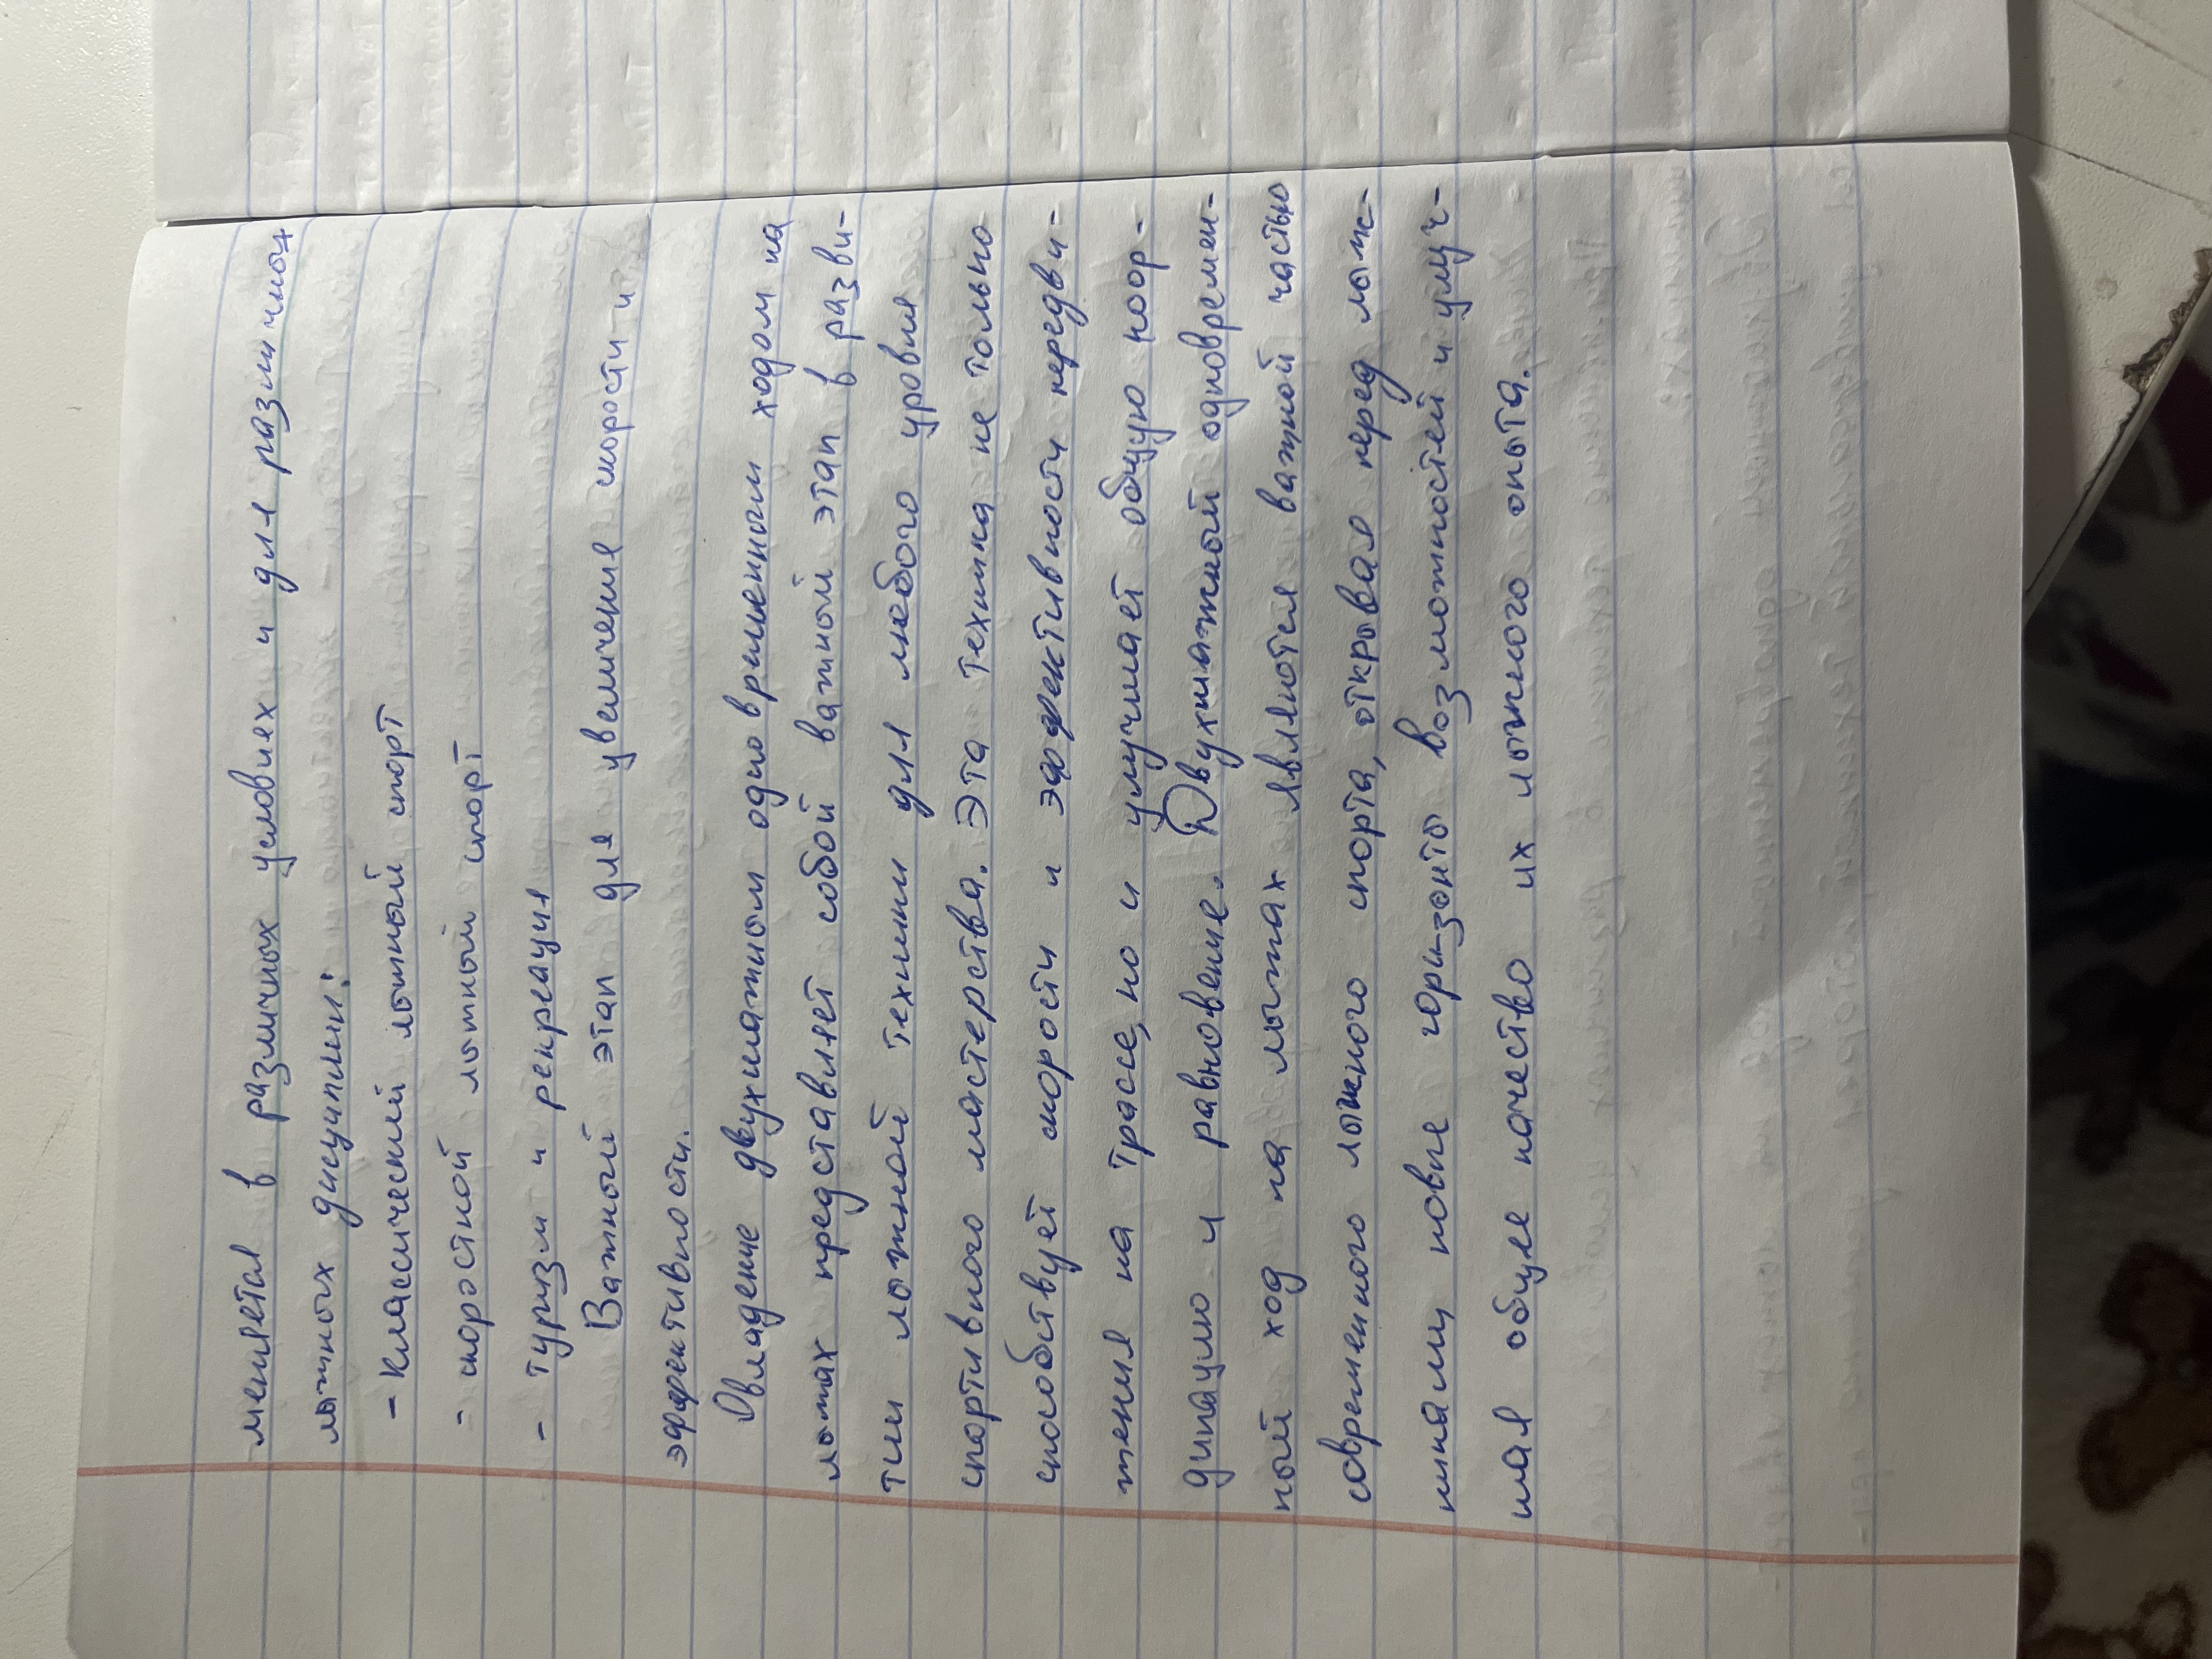 меняется в различных условиях и для различных
лыжных дисциплин:
- Классический лыжный спорт
- скоростной лыжный спорт
- туризм и рекреация
Важный этап для увеличения скорости и
эффективности.
Овладение двухшажным одновременным ходом на
лыжах представляет собой важный этап в разви-
тии лыжной техники для любого уровня
спортивного мастерства. Эта техника не только
способствует скорости и эффективности передви-
жения на трассе, но и улучшает общую коор-
динацию и равновесие. Двухшажный одновремен-
ный ход на лыжах являются важной частью
современного лыжного спорта, открывая перед лыж-
никами новые горизонты возможностей и улуч-
шая общее качество их лыжного опыта.